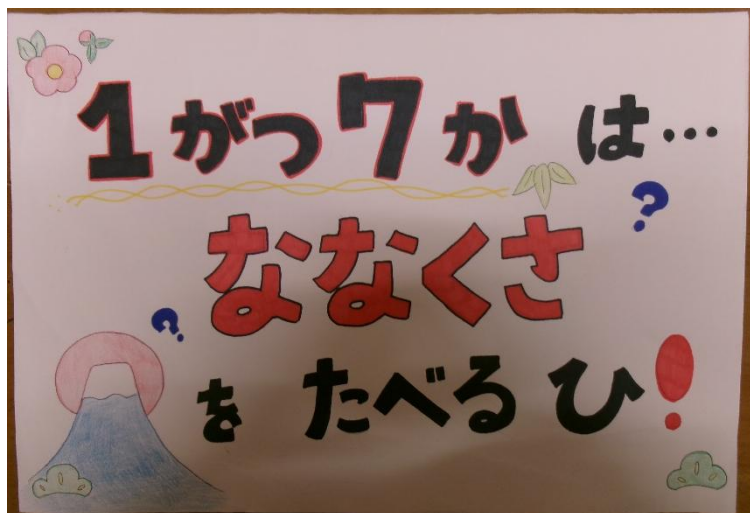 1がつ7かは…
ななくさ
をたべるひ!